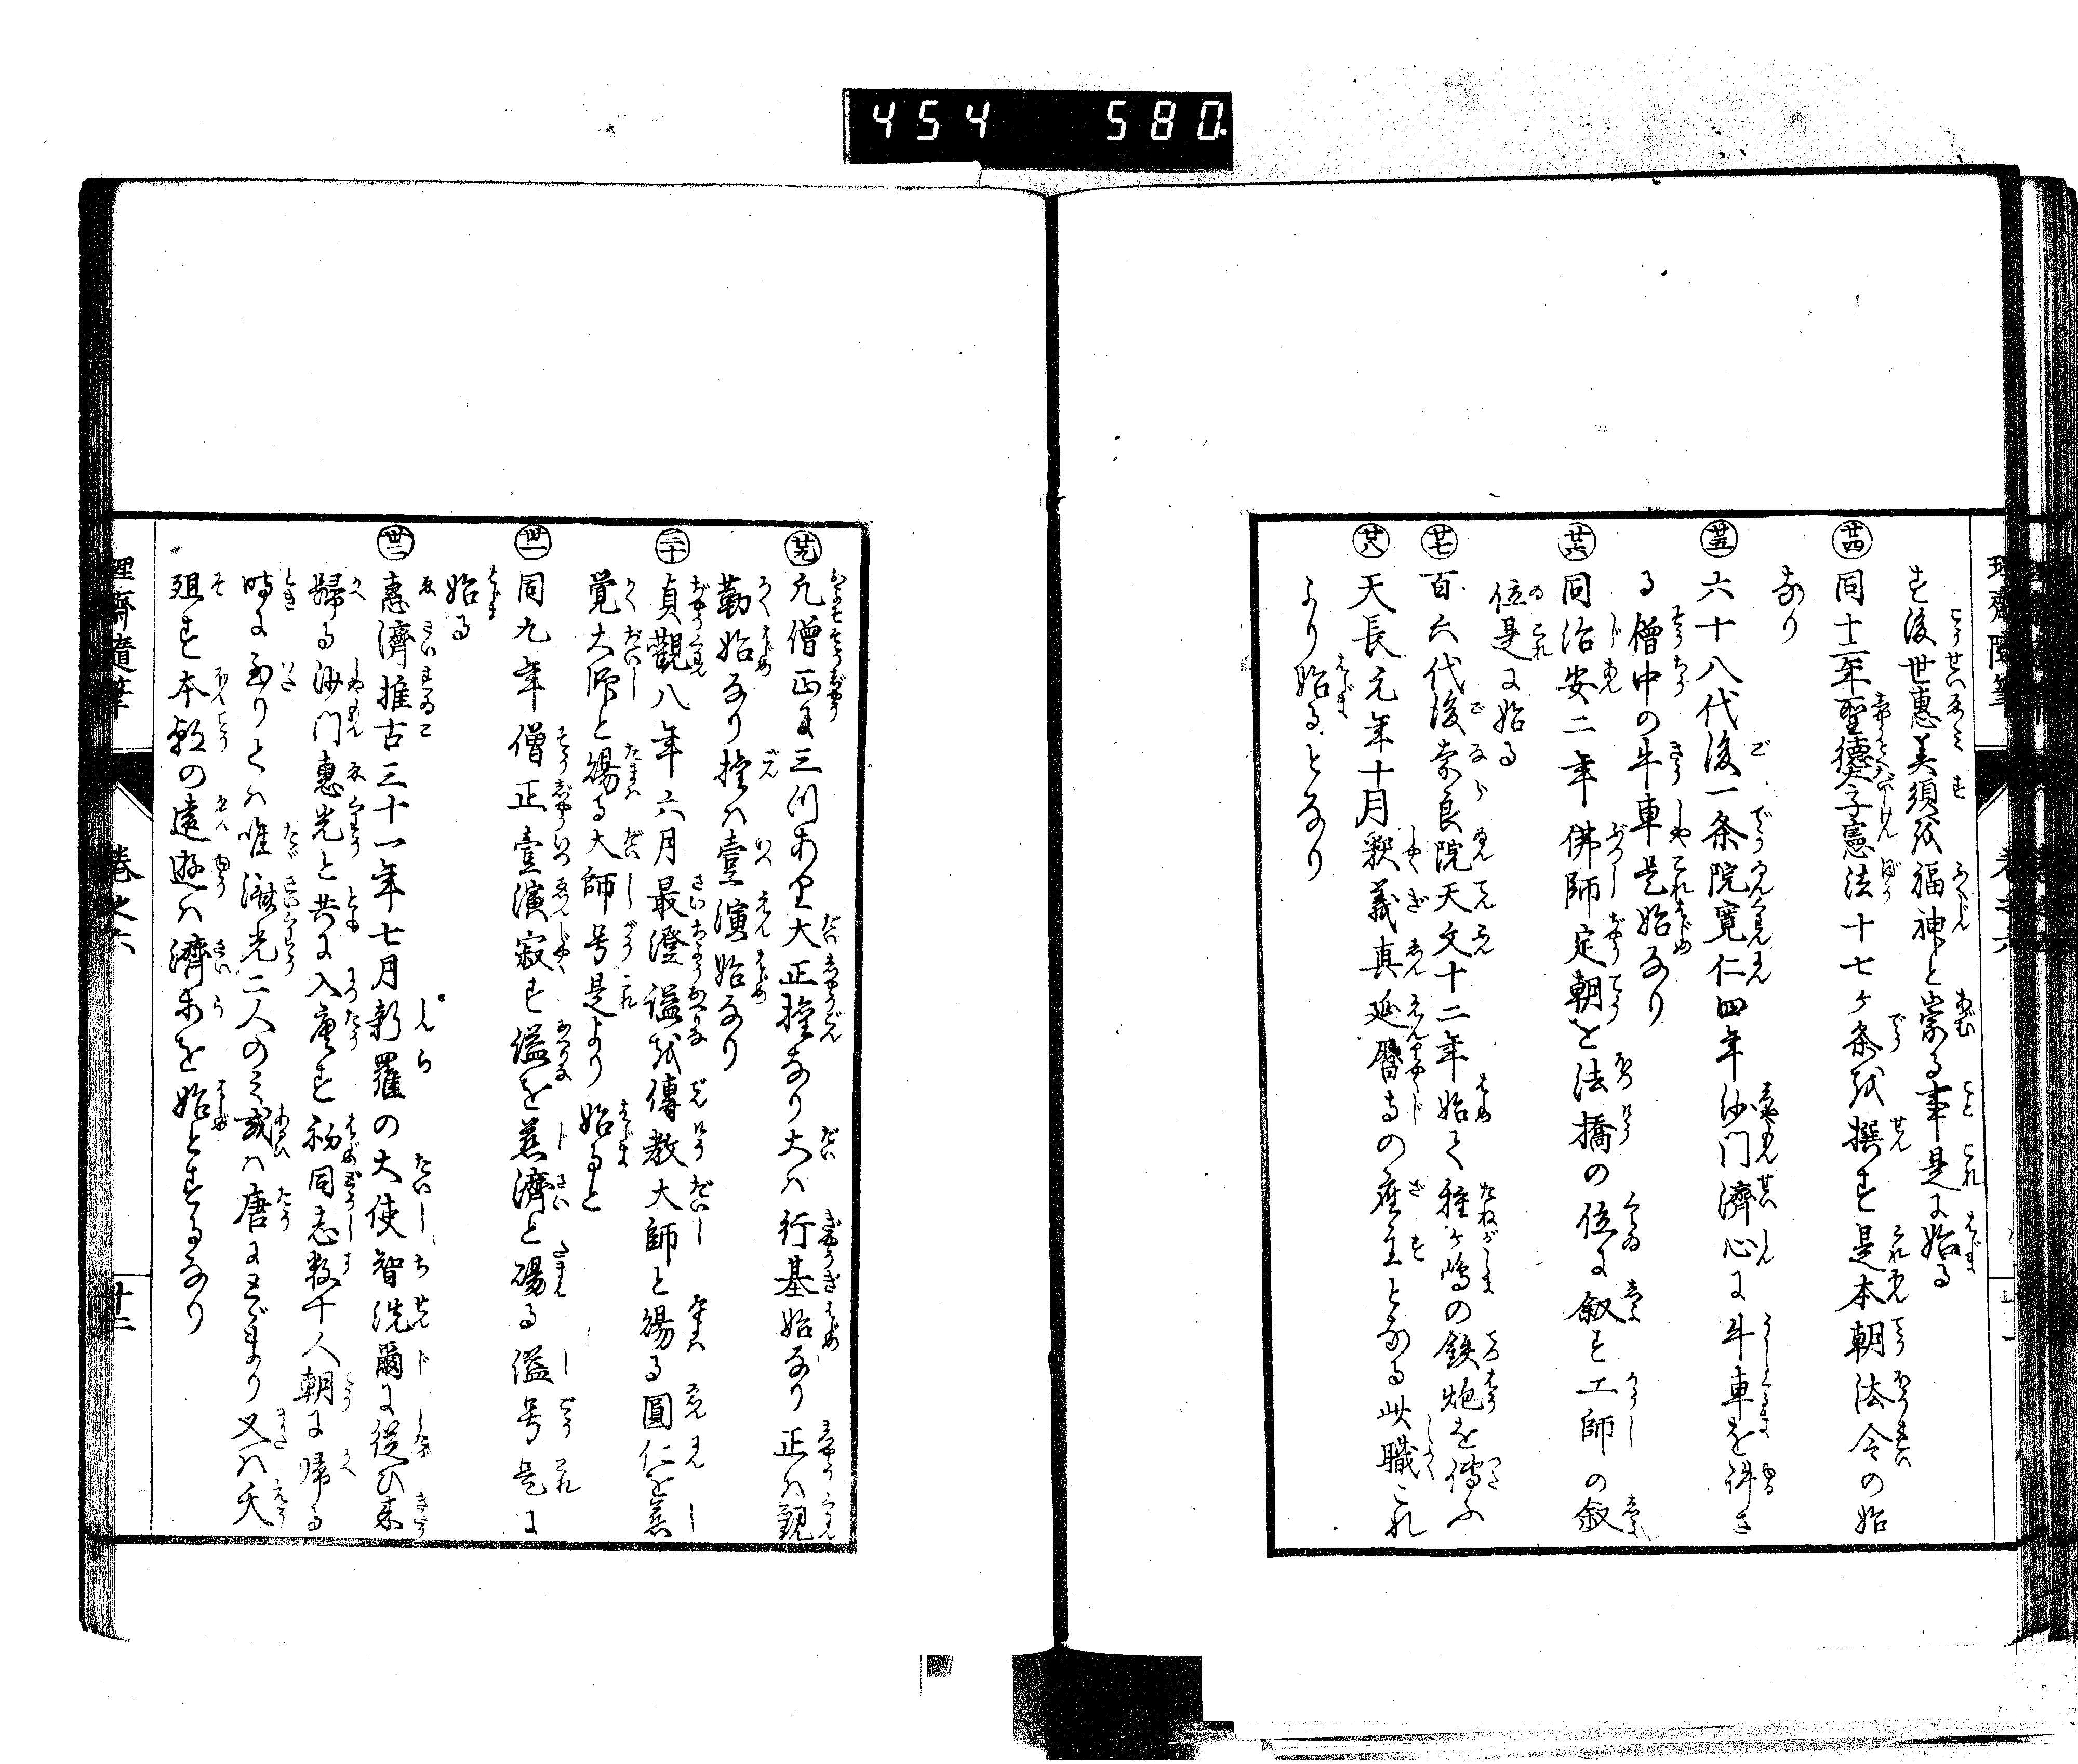 454 580
す後世恵美須を福神と崇る事是に始る
㊁四 同十二年聖徳太子憲法十七ケ条を撰す是本朝法令の始
なり
廿五 六十八代後一条院寛仁四年沙門済心に牛車を許さ
る僧中の牛車是始なり
廿六 同治安二年佛師定朝を法橋の位に叙す工師の叙
位是に始る
廿七 百六代後奈良院天文十二年始て種ケ嶋の鉄炮を傳ふ
廿八 天長元年十月釈義真延暦寺の座主となる此職これ
より始るとなり
廿九 凡僧正に三つあり大正権なり大ハ行基始なり正ハ観
勒始なり権ハ壹演始なり
三十 貞觀八年六月最澄謚を傳教大師と賜る圓仁を慈
覚大師と賜る大師号是より始ると
卅一 同九年僧正壹演寂す謚を慈濟と賜る謚号是に
始る
卅二 惠濟推古三十一年七月新羅の大使智洗爾に従ひ来
歸る沙門惠光と共に入唐す初同志数十人朝に帰る
時に至りとハ唯濟光二人のミ或ハ唐にとゞまり又ハ夭
殂す本朝の遠遊ハ濟等を始とするなり
理齋随筆 巻之六 廿二
理齋随筆 巻之六